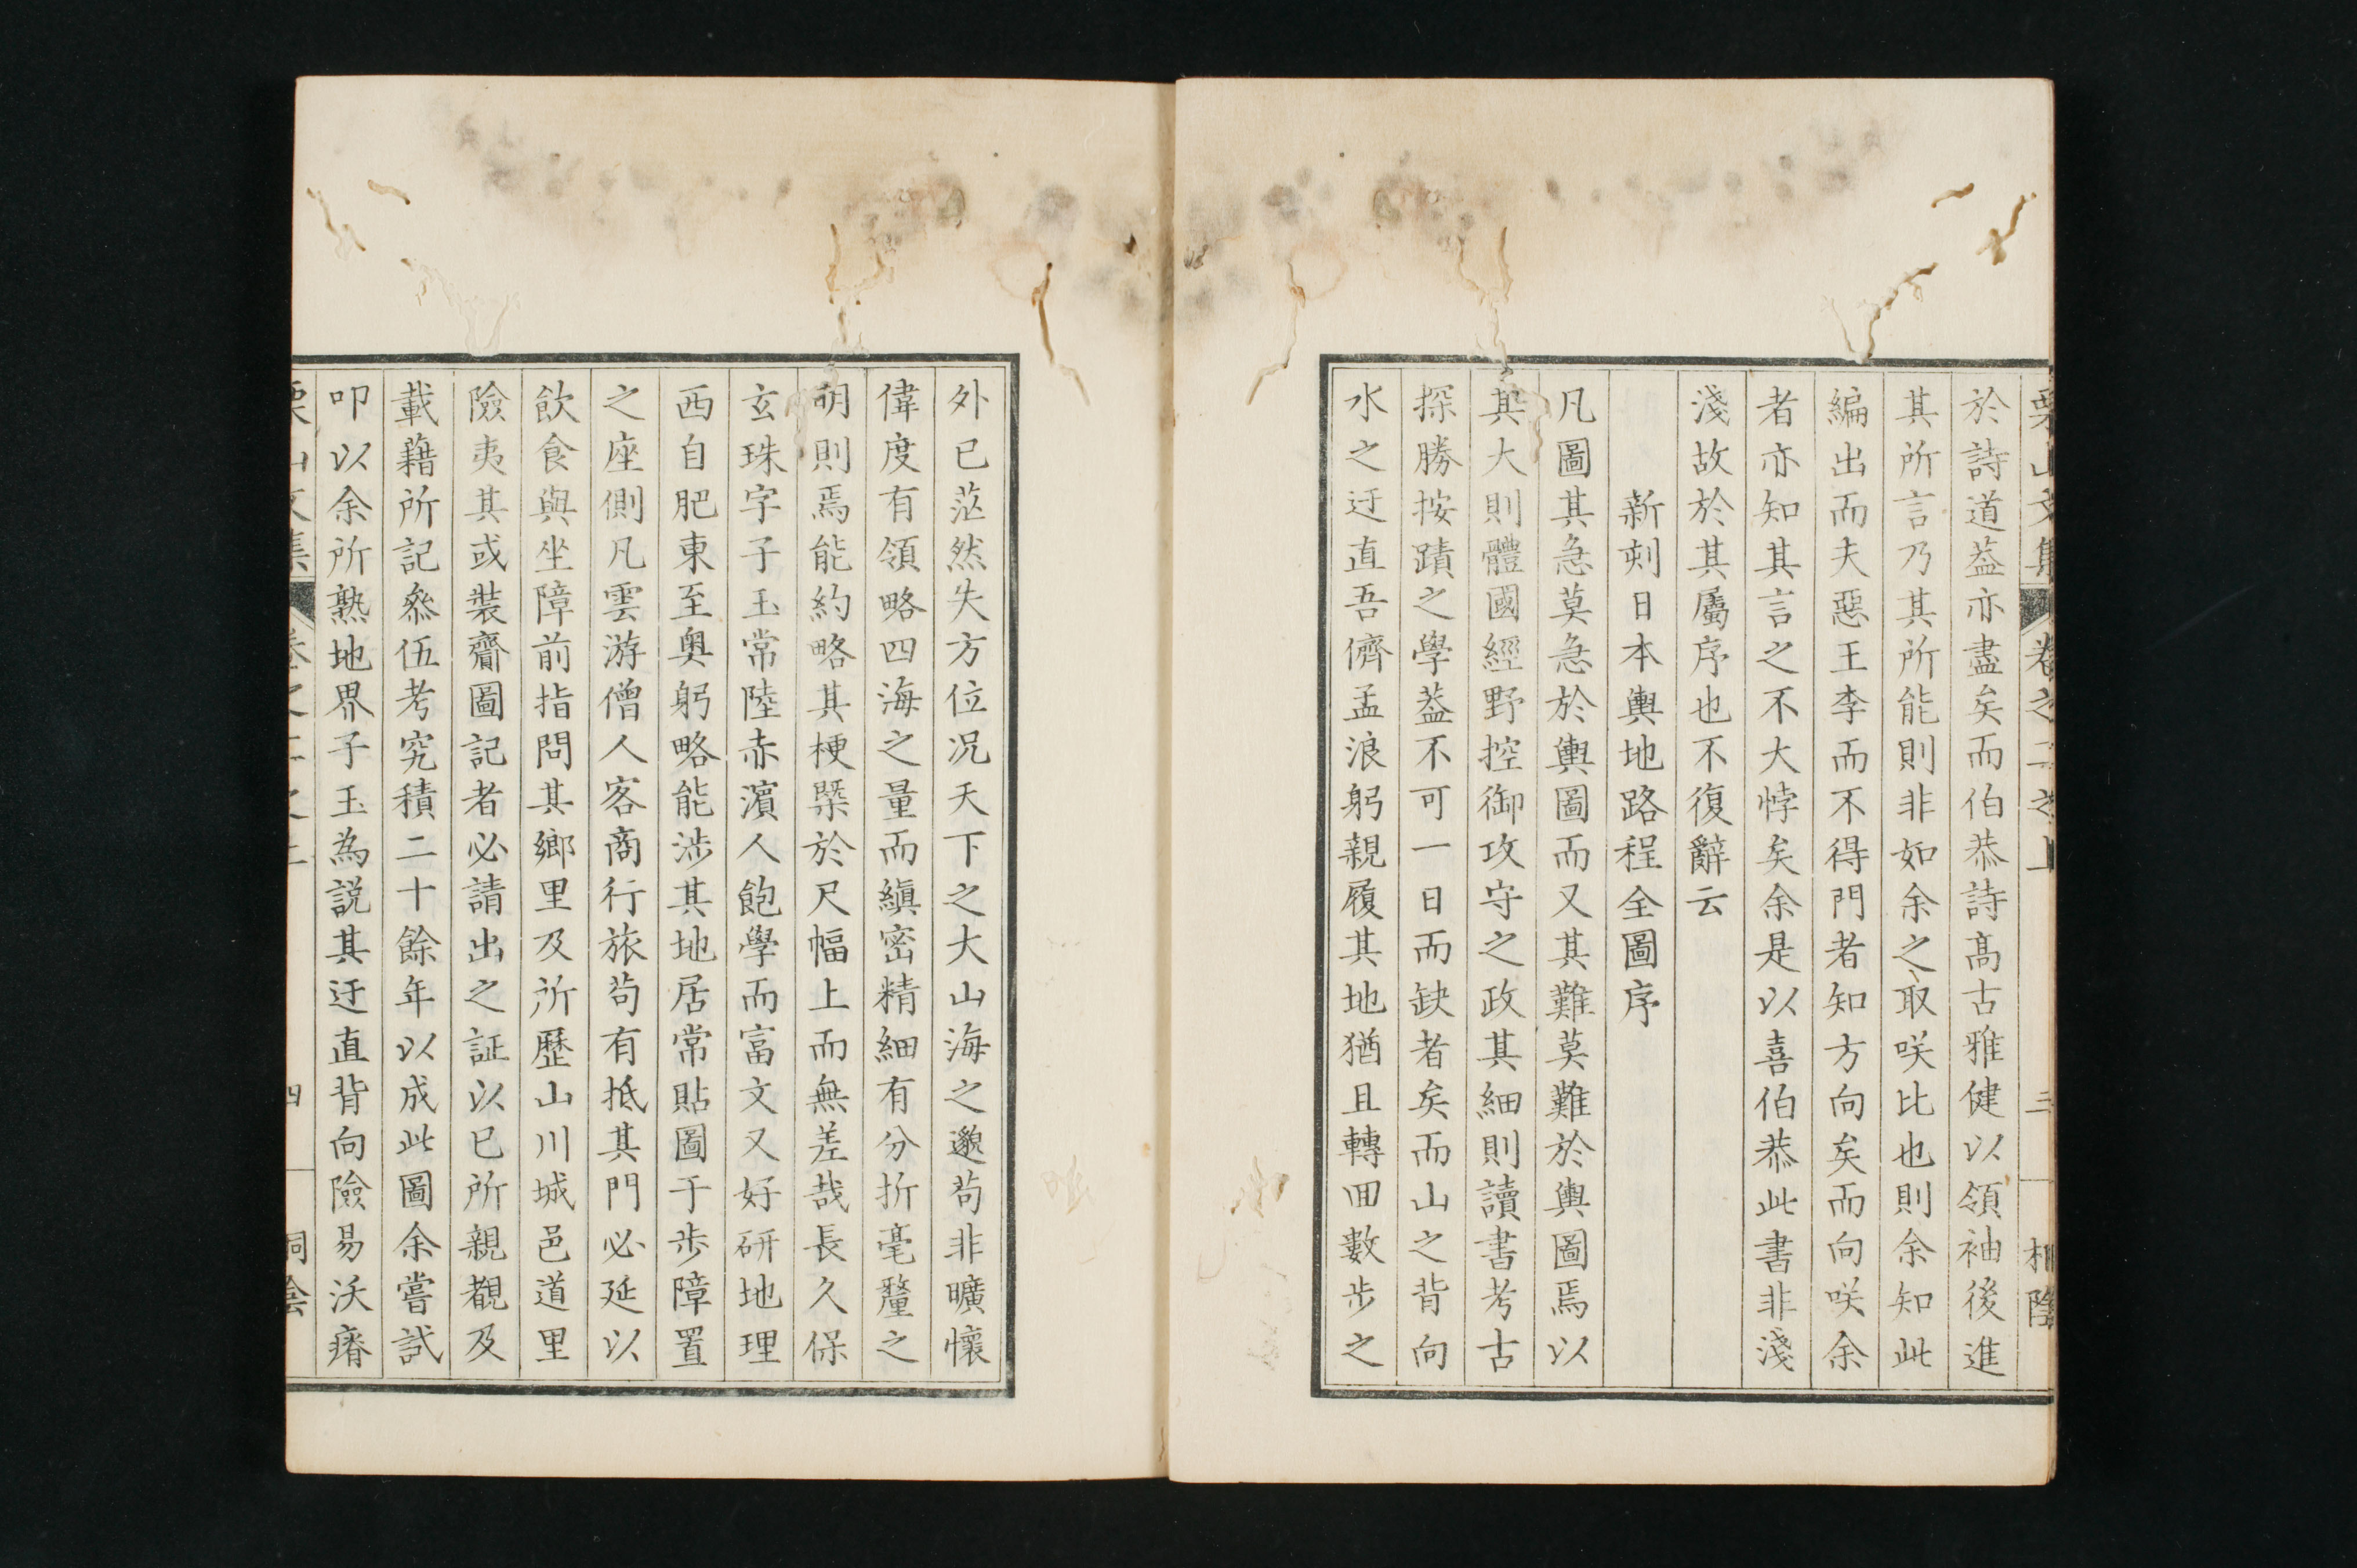 栗山文集 卷之二之上 三
於詩道葢亦盡矣而伯恭詩髙古雅健以領袖後進
其所言乃其所能則非如余之取咲比也則余知此
編出而夫惡王李而不得門者知方向矣而向咲余
者亦知其言之不大悖矣余是以喜伯恭此書非淺
淺故於其屬序也不復辭云
新刻日本輿地路程全圖序
凡圖其急莫急於輿圖而又其難莫難於輿圖焉以
其大則體國經野控御攻守之政其細則讀書考古
探勝按蹟之學葢不可一日而缺者矣而山之背向
水之迂直吾儕孟浪躬親履其地猶且轉囬數步之
外已茫然失方位况天下之大山海之邈苟非曠懷
偉度有領略四海之量而縝密精細有分折毫釐之
明則焉能約略其梗槩於尺幅上而無差哉長久保
玄珠字子玉常陸赤濵人飽學而富文又好研地理
西自肥東至奥躬略能涉其地居常貼圖于步障置
之座側凡雲游僧人客商行旅苟有抵其門必延以
飲食與坐障前指問其鄉里及所歷山川城邑道里
險夷其或裝齎圖記者必請出之証以已所親覩及
載藉所記叅伍考究積二十餘年以成此圖余嘗試
叩以余所熟地界子玉為説其迂直背向險易沃瘠
栗山文集 卷之二之上 四